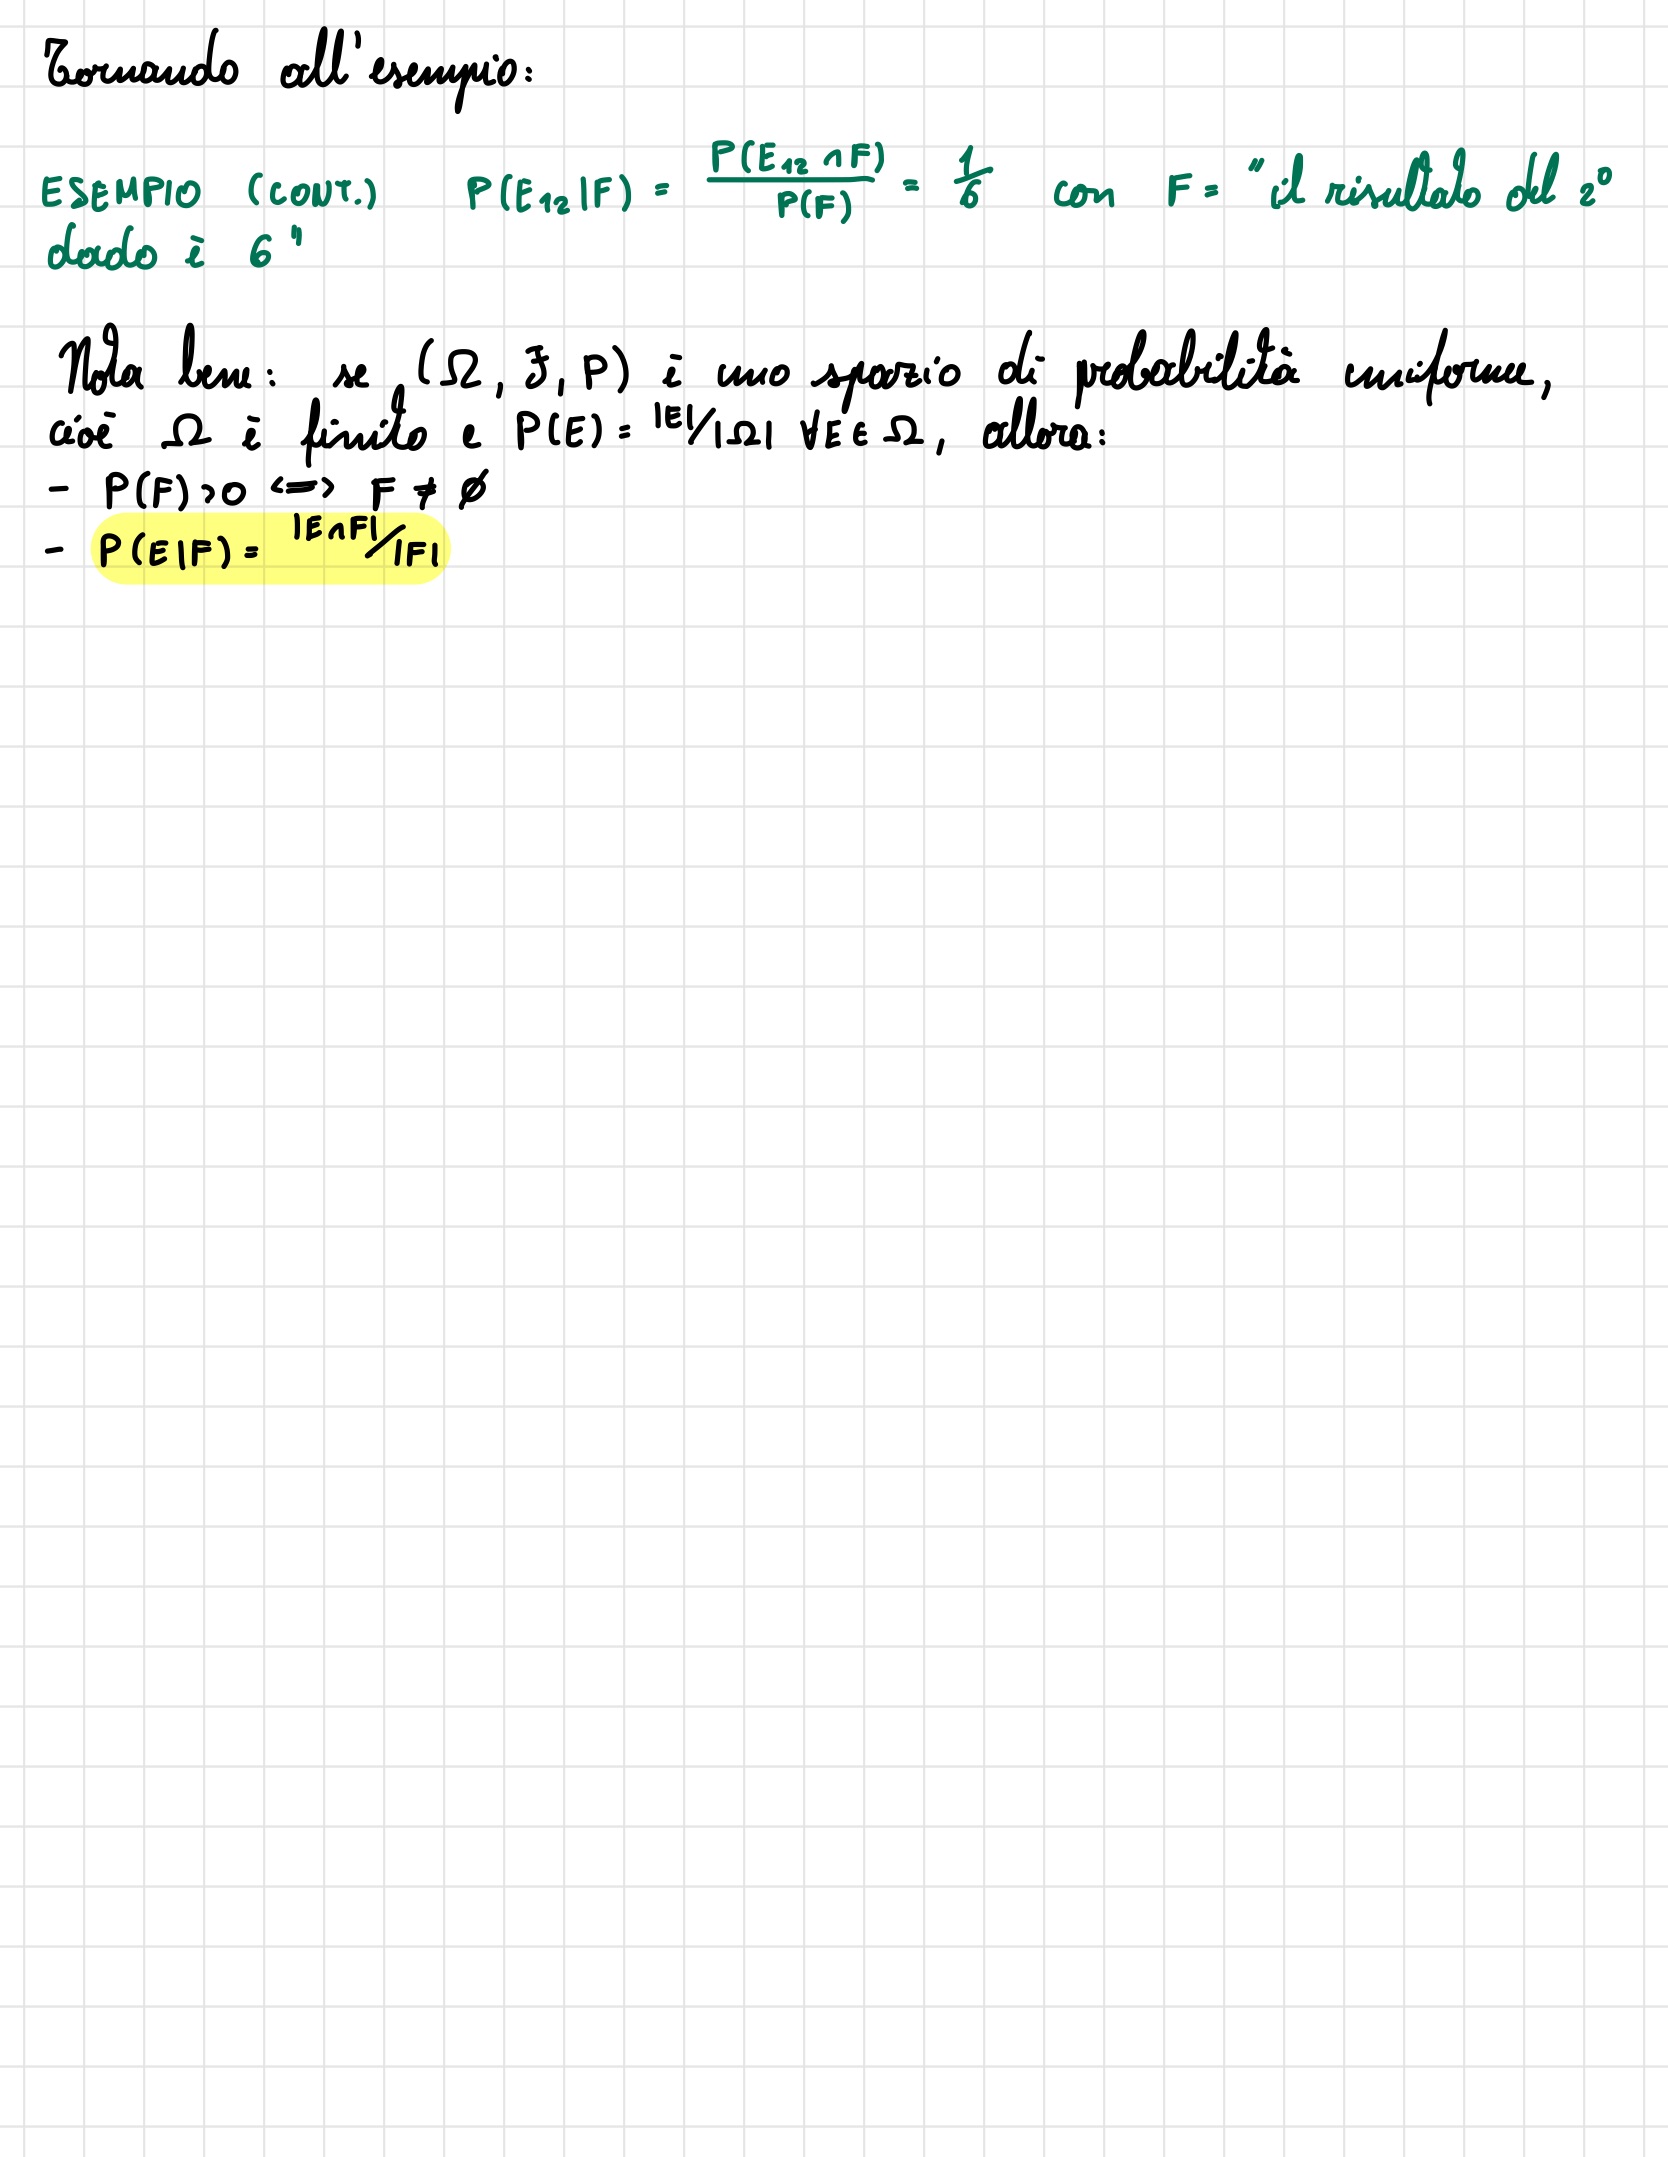 Tornando all'esempio:
ESEMPIO (CONT.) P(E₁₂|F) = P(E₁₂ ∩ F) / P(F) = 1/6 con F = "il risultato del 2°
dado è 6"
Nota bene: se (Ω, ℱ, P) è uno spazio di probabilità uniforme,
cioè Ω è finito e P(E) = |E|/|Ω| ∀E ∈ Ω, allora:
- P(F) > 0 <=> F ≠ ∅
- P(E|F) = |E∩F|/|F|